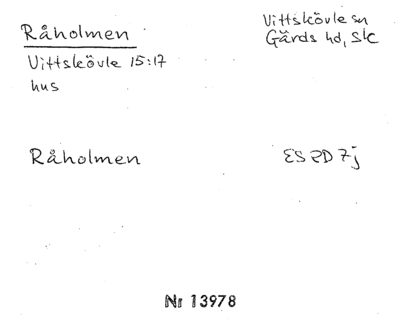 Råholmen
Vittskövle sn
Gärds hd, SkC
Vittskövle 15:17
hus
Råholmen
ES 2D 7j
Nr 13978